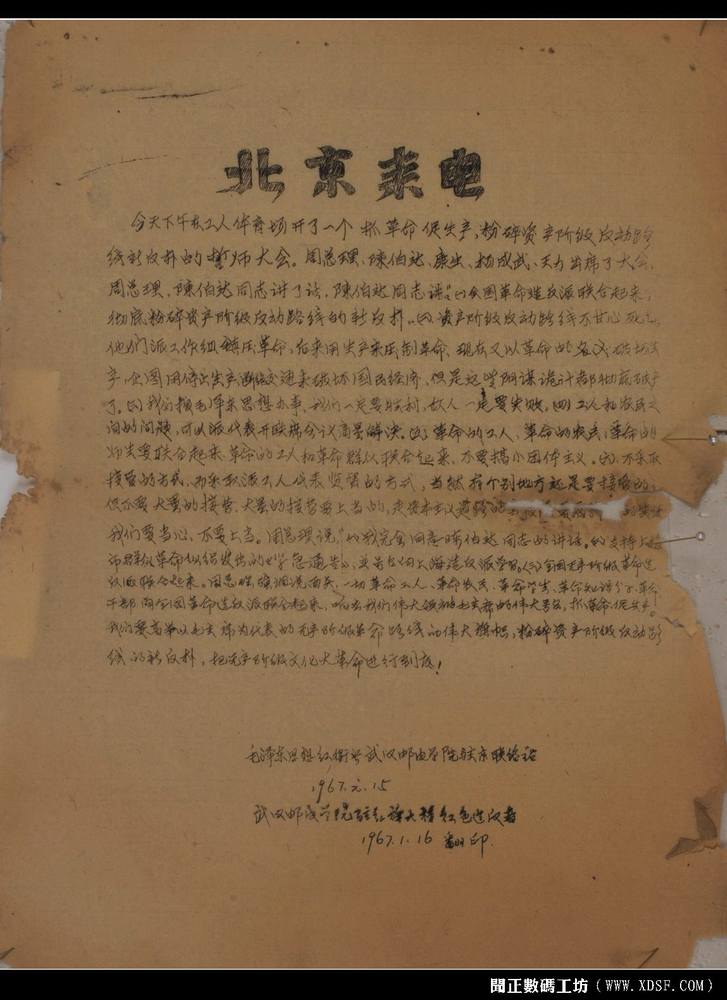 北京来电
今天下午在工人体育场开了一个抓革命促生产,粉碎资产阶级反动路
线新反扑的誓师大会。周总理、陈伯达、康生、杨成武、王力出席了大会,
周总理、陈伯达同志讲了话,陈伯达同志讲:“(1)全国革命造反派联合起来,
彻底粉碎资产阶级反动路线的新反扑。(2)资产阶级反动路线不甘心死亡,
他们派工作组镇压革命,后来用生产来压制革命,现在又以革命的名义破坏生
产,企图用停止生产,断绝交通来破坏国民经济,但是这些阴谋诡计都彻底破产
了。(3)我们按毛泽东思想办事,我们一定要胜利,敌人一定要失败。(4)工人和农民之
间的问题,可以派代表开联席会议商量解决。(5)革命的工人,革命的农民,革命的
师生要联合起来,革命的工人和革命群众联合起来,不要搞小团体主义。(6)不采取
接管的方式,而采取派工人代表监督的方式,当然有个别地方还是要接管的,
但不要大量的接管,大量的接管要上当的,走资本主义道路的
我们要当心,不要上当。周总理说:“(1)我完全同意陈伯达同志的讲话。(2)支持上海
市群众革命组织发出的《紧急通告》,并号召向上海造反派学习。(3)全国无产阶级革命造
反派联合起来。周总理强调说明天,一切革命工人、革命农民、革命学生、革命知识分子、革命
干部同全国革命造反派联合起来,响应我们伟大领袖毛主席的伟大号召,抓革命,促生产
我们要高举以毛主席为代表的无产阶级革命路线的伟大旗帜,粉碎资产阶级反动路
线的新反扑,把无产阶级文化大革命进行到底!
毛泽东思想红卫兵武汉邮电学院驻京联络站
1967.元.15
武汉邮电学院红旗大楼红色造反者
1967.1.16 翻印
聞正數碼工坊(WWW.XDSF.COM)